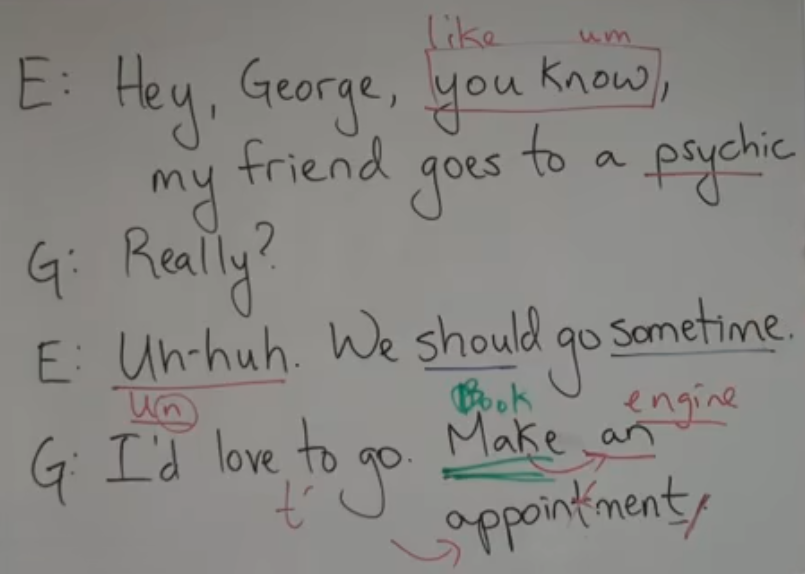 like um
E: Hey, George, you know,
my friend goes to a psychic
G: Really?
E: Uh-huh. We should go sometime.
un Book engine
G: I'd love to go. Make an
t' appointment